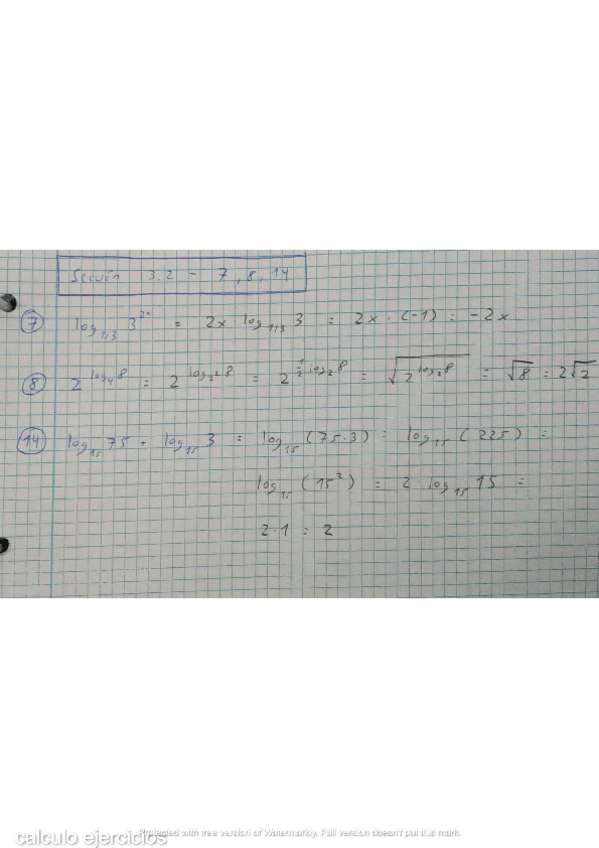 Sección 3.2 - 7, 8, 14
7 log_{1/3} 3^{2x} = 2x · log_{1/3} 3 = 2x · (-1) = -2x
8 2^{log_4 8} = 2^{log_{2^2} 8} = 2^{1/2 log_2 8} = √(2^{log_2 8}) = √8 = 2√2
14 log_{15} 75 + log_{15} 3 = log_{15} (75·3) = log_{15} (225) =
log_{15} (15^2) = 2 · log_{15} 15 =
2·1 = 2
calculo ejercicios
Protected with free version of Watermarkly. Full version doesn't put this mark.